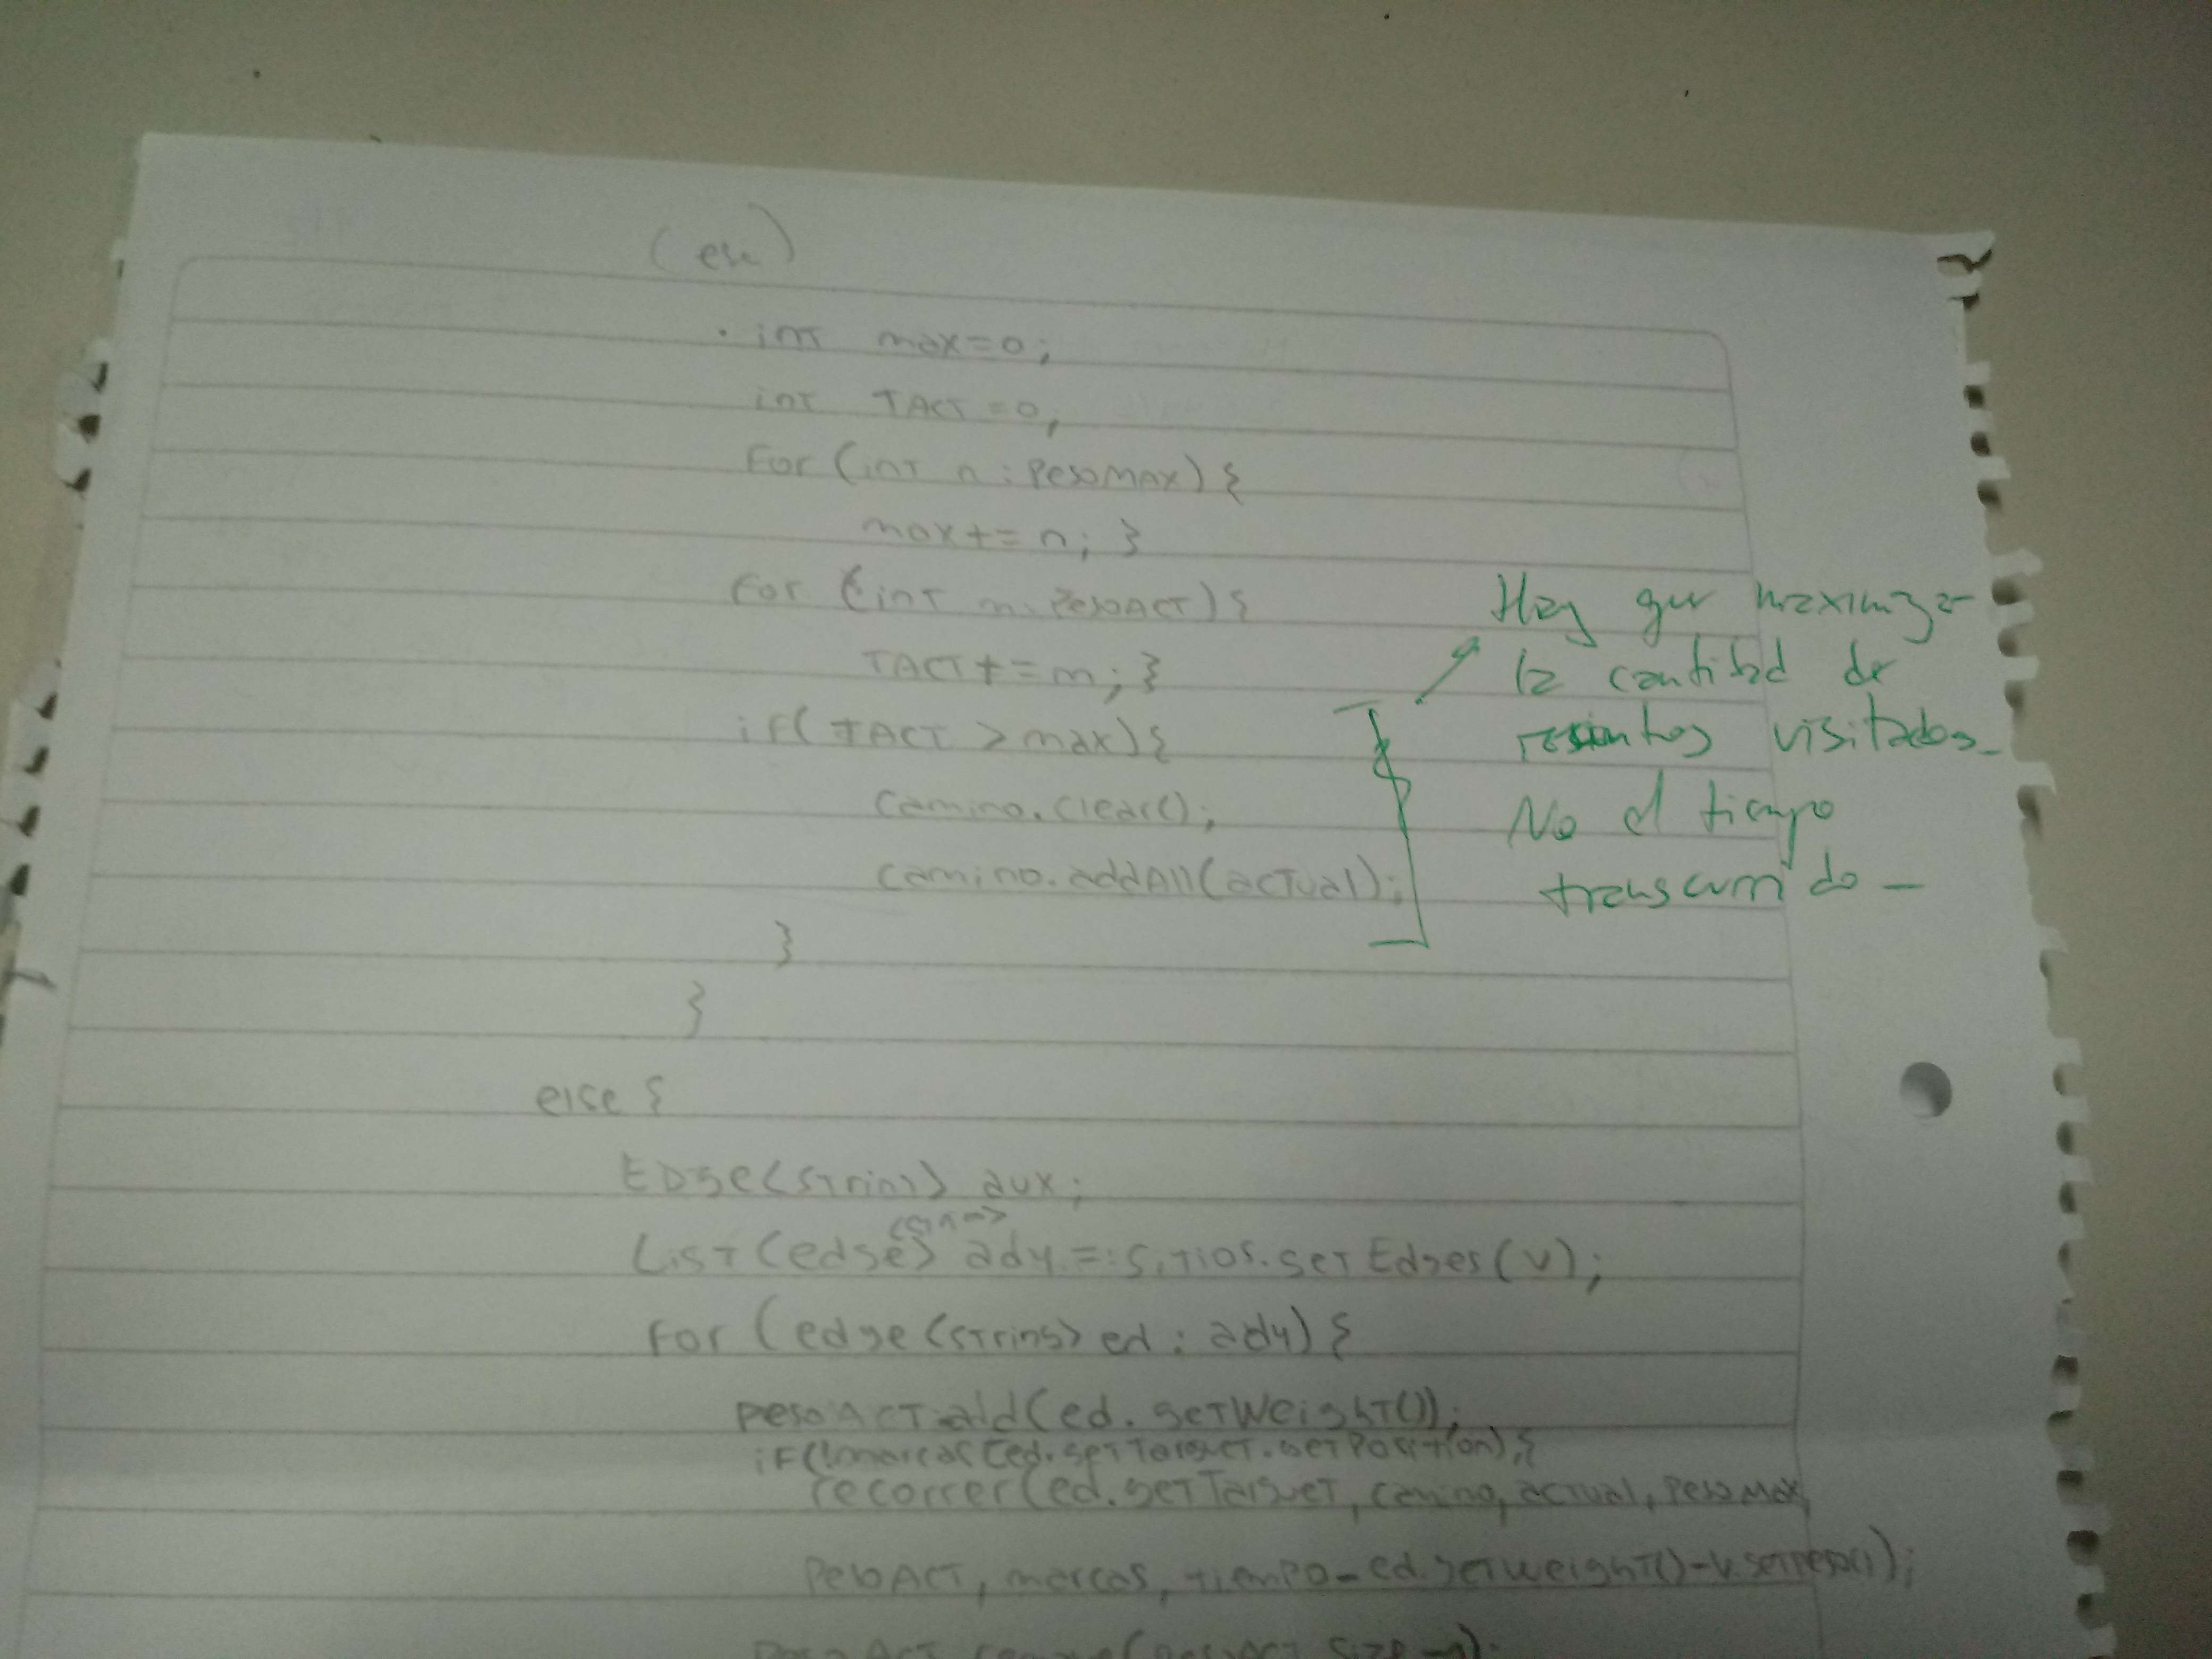 int max=0;
int TACT=0;
For (int n : PesoMAX) {
max += n; }
For (int m : PesoACT) {
TACT += m; }
if( TACT > max) {
camino.clear();
camino.addAll(actual);
}
}
Hay que maximizar
la cantidad de
visitados
No el tiempo
transcurrido
else {
EDge<String> aux;
List<edge<String>> ady = sitios.getEdges(v);
For (edge<String> ed : ady) {
pesoACT.add(ed.getWeight());
if(!marcas[ed.getTarget.getPosition) {
recorrer(ed.getTarget, camino, actual, pesoMax,
PesoACT, marcas, tiempo - ed.getweight()-v.getpeso());